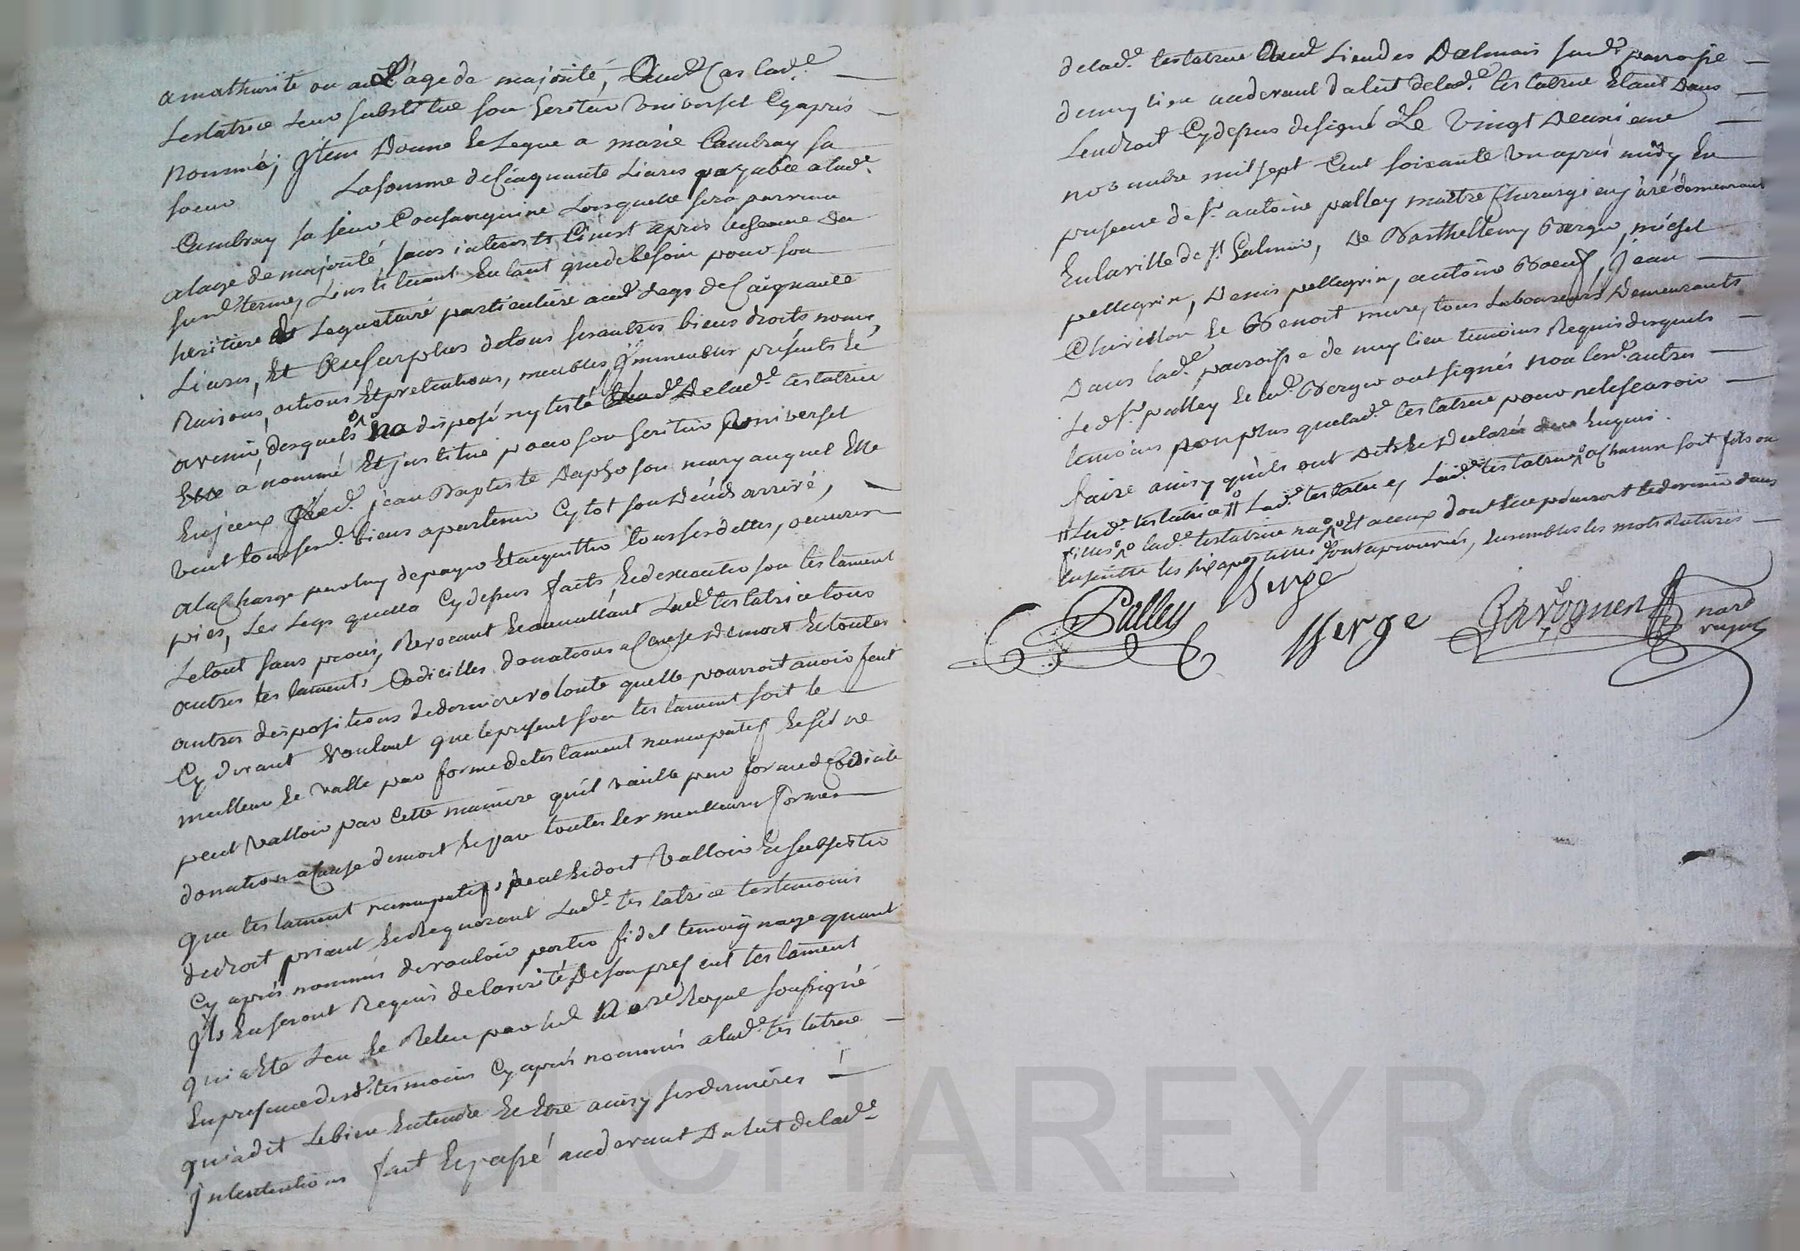 a mathurité ou a l'age de majorité, Aud. Cas lad.e
testatrice leur substitue son heritier universel Cyaprès
nommé; Item Donne et Legue a marie Cambray sa
soeur La somme de Cinquante Livres payable a lad.
Cambray sa seur Consanguine Lorsquelle sera parvenue
a l'age de majorité sans interets, Cinest apres
sund. terme, L'instituant en tant que de besoin pour son
heritiere et Legataire particuliere aud. Legs de Cinquante
Livres, Et Au surplus de tous ses autres biens droits noms,
Raisons, actions Et pretentions, meubles immeubles présents Et
avenir, desquels na disposé ny testé lad.e testatrice
Elle a nommé Et institue pour son heritier universel
jean Baptiste Dapzo son mary auquel Elle
veut tous sesd. biens apartenir Cytot son Décès arrivé,
a la Charge par luy de payer Et acquitter tous ses dettes, oeuvres
pies, Les Legs quelle a Cydessus faits Et dexecuter son testament
Le tout sans procès, Revocant Et annullant Lad.e testatrice tous
autres testaments, Codicilles, donations a Cause de mort Et toutes
autres dispositions de derniere volonté quelle pourroit avoir fait
Cy devant voulant que le present son testament soit le
meilleur Et valle par forme de testament nuncupatif Et s'il ne
peut valloir par Cette maniere qu'il vaille par forme de Codicile
donation a Cause de mort Et par toutes les meilleures formes
que testament nuncupatif peut Et doit valloir Et subsister
de droit priant Et Requerant Lad.e testatrice tesmoins
Cy après nommés de vouloir porter fidel temoignage quant
Ils En seront Requis de la verité De son present testament
qui a Eté Leu Et Releu par led. No.re Royal soussigné
En presence desd. tesmoins Cyaprès nommés a lad.e testatrice
qui a dit Le bien Entendre Et Etre ainsy ses dernieres
Intentions fait Et passé audevant Du lut de lad.e
de lad.e testatrice Aud. Lieu des Dalmais sud.e parroisse
de myzieu audevant Dulut de lad.e testatrice Etant Dans
Lendroit Cydessus designé Le vingt Deuxieme
novembre mil sept Cent soixante un après midy En
presence de S.r antoine palley maitre Chirurgien juré demeurant
En la ville de S.t Galmier, De Barthellemy Verge, michel
pellegrin, Denis pellegrin, antoine Boeuf, Jean
Chirillon Et Benoit mure, tous Laboureurs Demeurants
Dans lad.e paroisse de myzieu temoins Requis desquels
Led. S.r palley Et led. Verge ont signés non lesd. autres
temoins non plus que lad.e testatrice pour ne le scavoir
faire ainsy qu'ils ont dit Et Declaré Enquis.
Lad.e testatrice Lad.e testatrice Lad.e testatrice a Chacun soit fils ou
filles lad.e testatrice na Et a ceux dont Elle pouroit Et devenir dans
Ensuitte les six apostilles sont aprouvés, Ensembles les mots Raturés
Palley Verge Verge